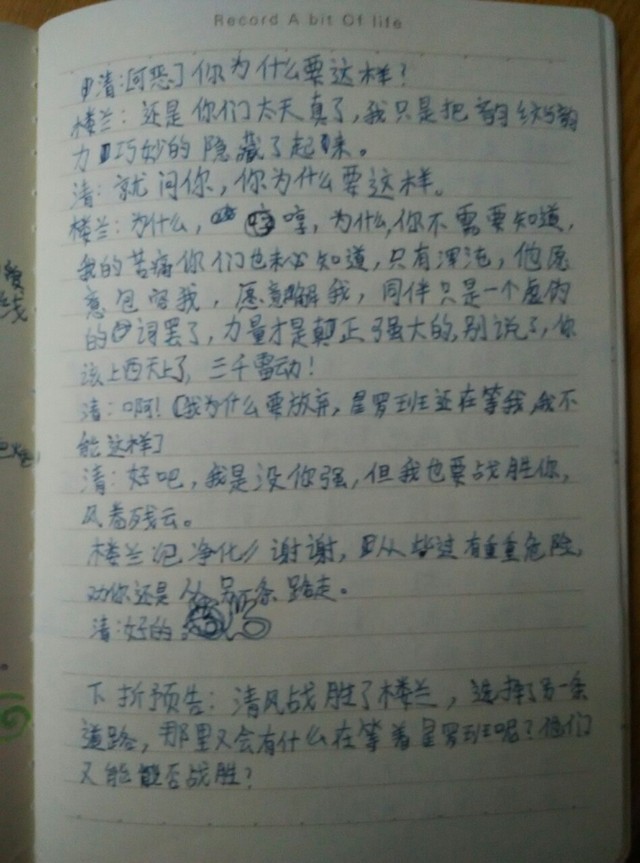 Record A bit Of life
清:[可恶]你为什么要这样?
楼兰:还是你们太天真了,我只是把
力巧妙的隐藏了起来。
清:就问你,你为什么要这样。
楼兰:为什么,哼,为什么,你不需要知道,
我的苦痛你们也未必知道,只有浑沌,他愿
意包容我,愿意了解我,同伴只是一个虚伪
的词罢了,力量才是真正强大的,别说了,你
该上西天上了,三千雷动!
清:啊!(我为什么要放弃,星罗班还在等我,我不
能这样]
清:好吧,我是没你强,但我也要战胜你,
风卷残云。
楼兰:(已净化)谢谢,从这过有重重危险,
劝你还是从另一条路走。
清:好的
下折预告:清风战胜了楼兰,选择了另一条
道路,那里又会有什么在等着星罗班呢?他们
又能否战胜?